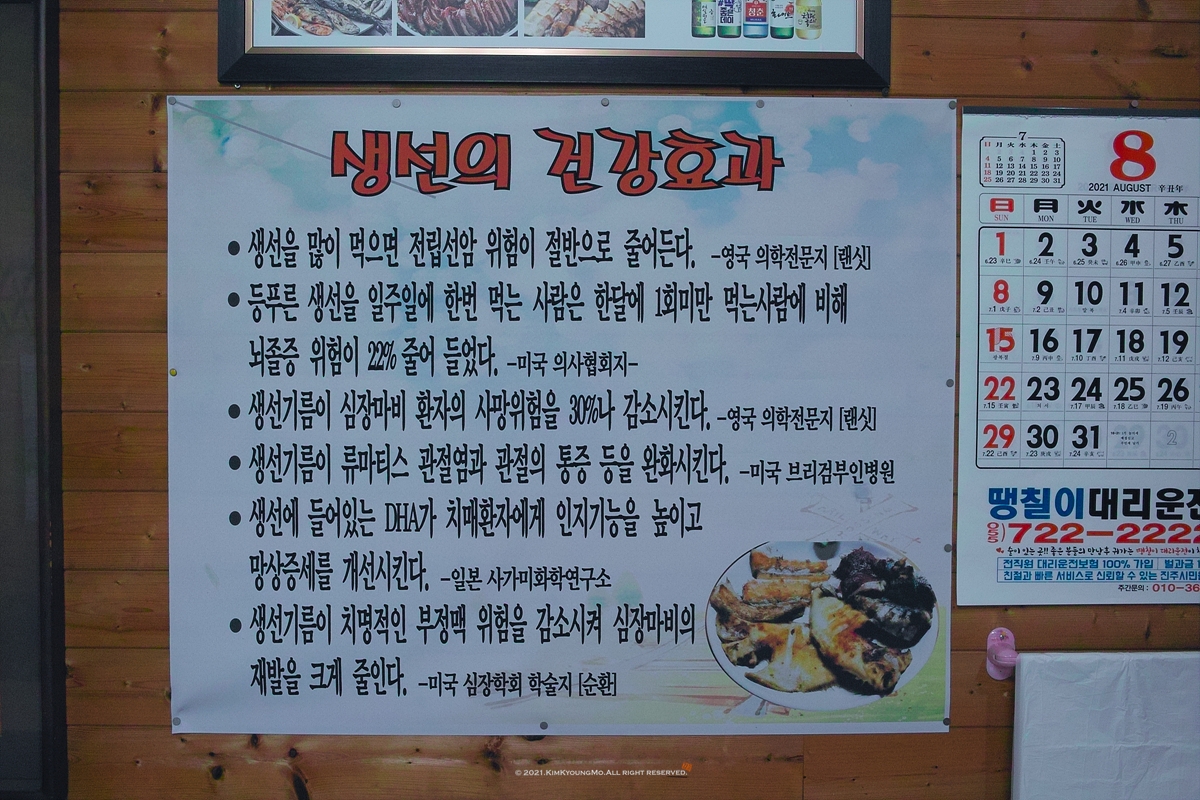 생선의 건강효과
● 생선을 많이 먹으면 전립선암 위험이 절반으로 줄어든다. -영국 의학전문지 [랜싯]
● 등푸른 생선을 일주일에 한번 먹는 사람은 한달에 1회미만 먹는사람에 비해
뇌졸증 위험이 22% 줄어 들었다. -미국 의사협회지-
● 생선기름이 심장마비 환자의 사망위험을 30%나 감소시킨다. -영국 의학전문지 [랜싯]
● 생선기름이 류마티스 관절염과 관절의 통증 등을 완화시킨다. -미국 브리검부인병원
● 생선에 들어있는 DHA가 치매환자에게 인지기능을 높이고
망상증세를 개선시킨다. -일본 사가미화학연구소
● 생선기름이 치명적인 부정맥 위험을 감소시켜 심장마비의
재발을 크게 줄인다. -미국 심장학회 학술지 [순환]
7
日 月 火 水 木 金 土
1 2 3
4 5 6 7 8 9 10
11 12 13 14 15 16 17
18 19 20 21 22 23 24
25 26 27 28 29 30 31
8
2021 AUGUST 辛丑年
日 月 火 水 木
SUN MON TUE WED THU
1 2 3 4 5
8 9 10 11 12
15 16 17 18 19
22 23 24 25 26
29 30 31
땡칠이대리운전
722-2222
전직원 대리운전보험 100% 가입
친절과 빠른 서비스로 신뢰할 수 있는 진주시민
주간문의: 010-36
© 2021.KimKyoungMo.All right reserved.